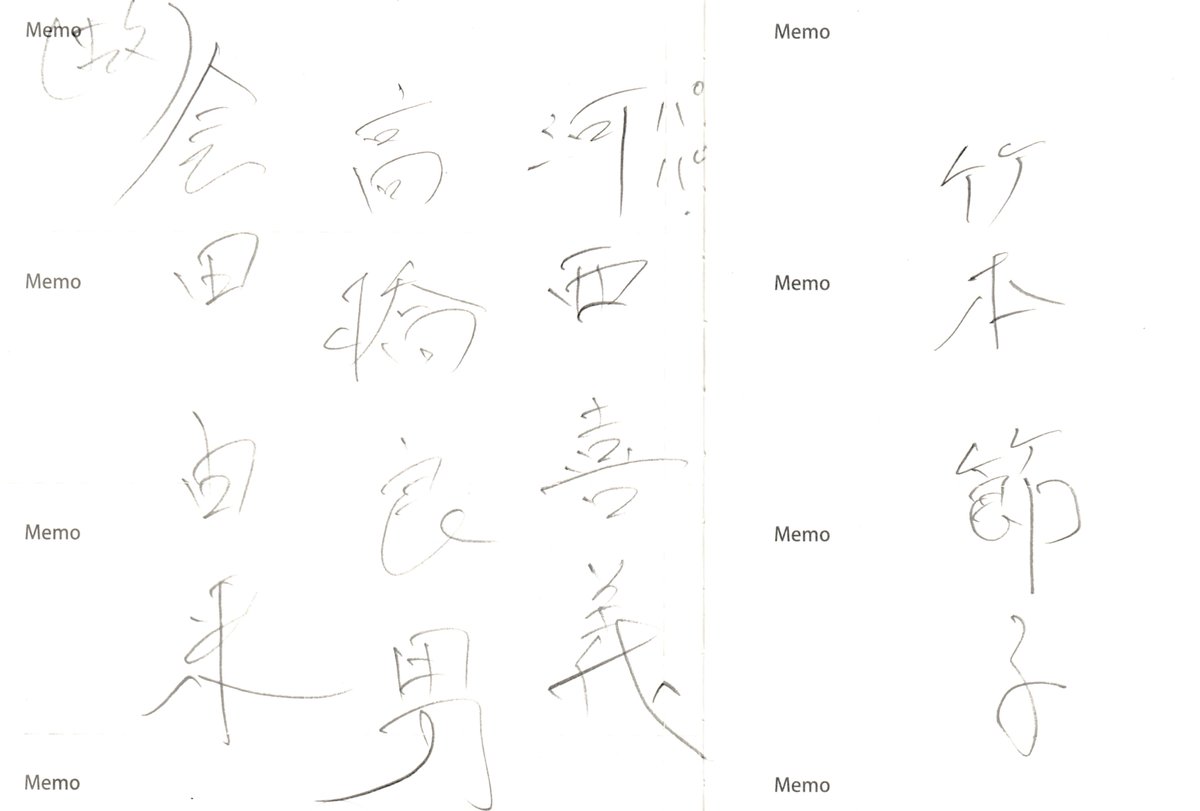 竹本節子
パパ
河西喜義
高橋良男
(故)会田由来
Memo
Memo
Memo
Memo
Memo
Memo
Memo
Memo